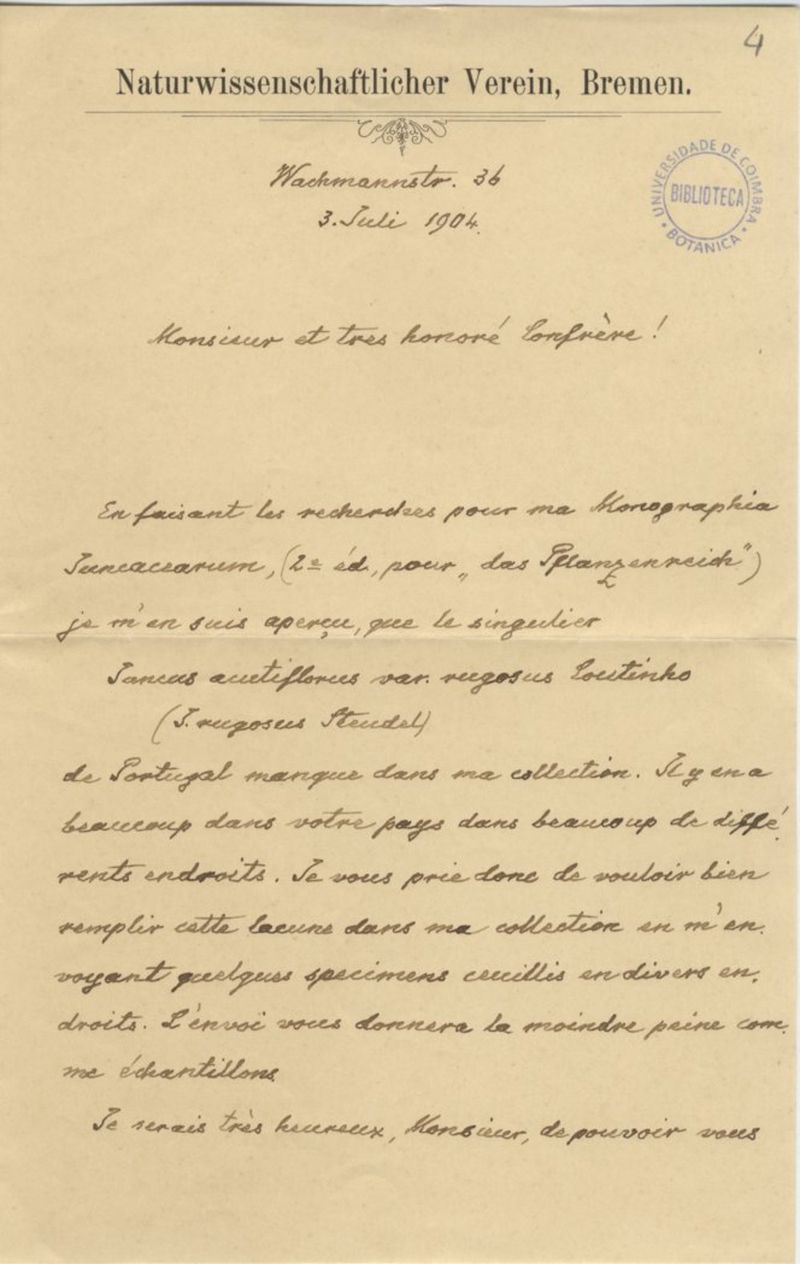 4
Naturwissenschaftlicher Verein, Bremen.
UNIVERSIDADE DE COIMBRA
BIBLIOTECA
BOTANICA
Wachmannstr. 36
3. Juli 1904.
Monsieur et tres honoré Confrère!
En faisant les recherches pour ma Monographia
Juncacearum, (2e éd., pour „das Pflanzenreich")
je m'en suis aperçu, que le singulier
Juncus acutiflorus var. rugosus Coutinho
(J. rugosus Steudel)
de Portugal manque dans ma collection. Il y en a
beaucoup dans votre pays dans beaucoup de diffé
rents endroits. Je vous prie donc de vouloir bien
remplir cette lacune dans ma collection en m'en-
voyant quelques specimens ceuillis en divers en-
droits. L'envoi vous donnera la moindre peine com-
me échantillons.
Je serais très heureux, Monsieur, de pouvoir vous